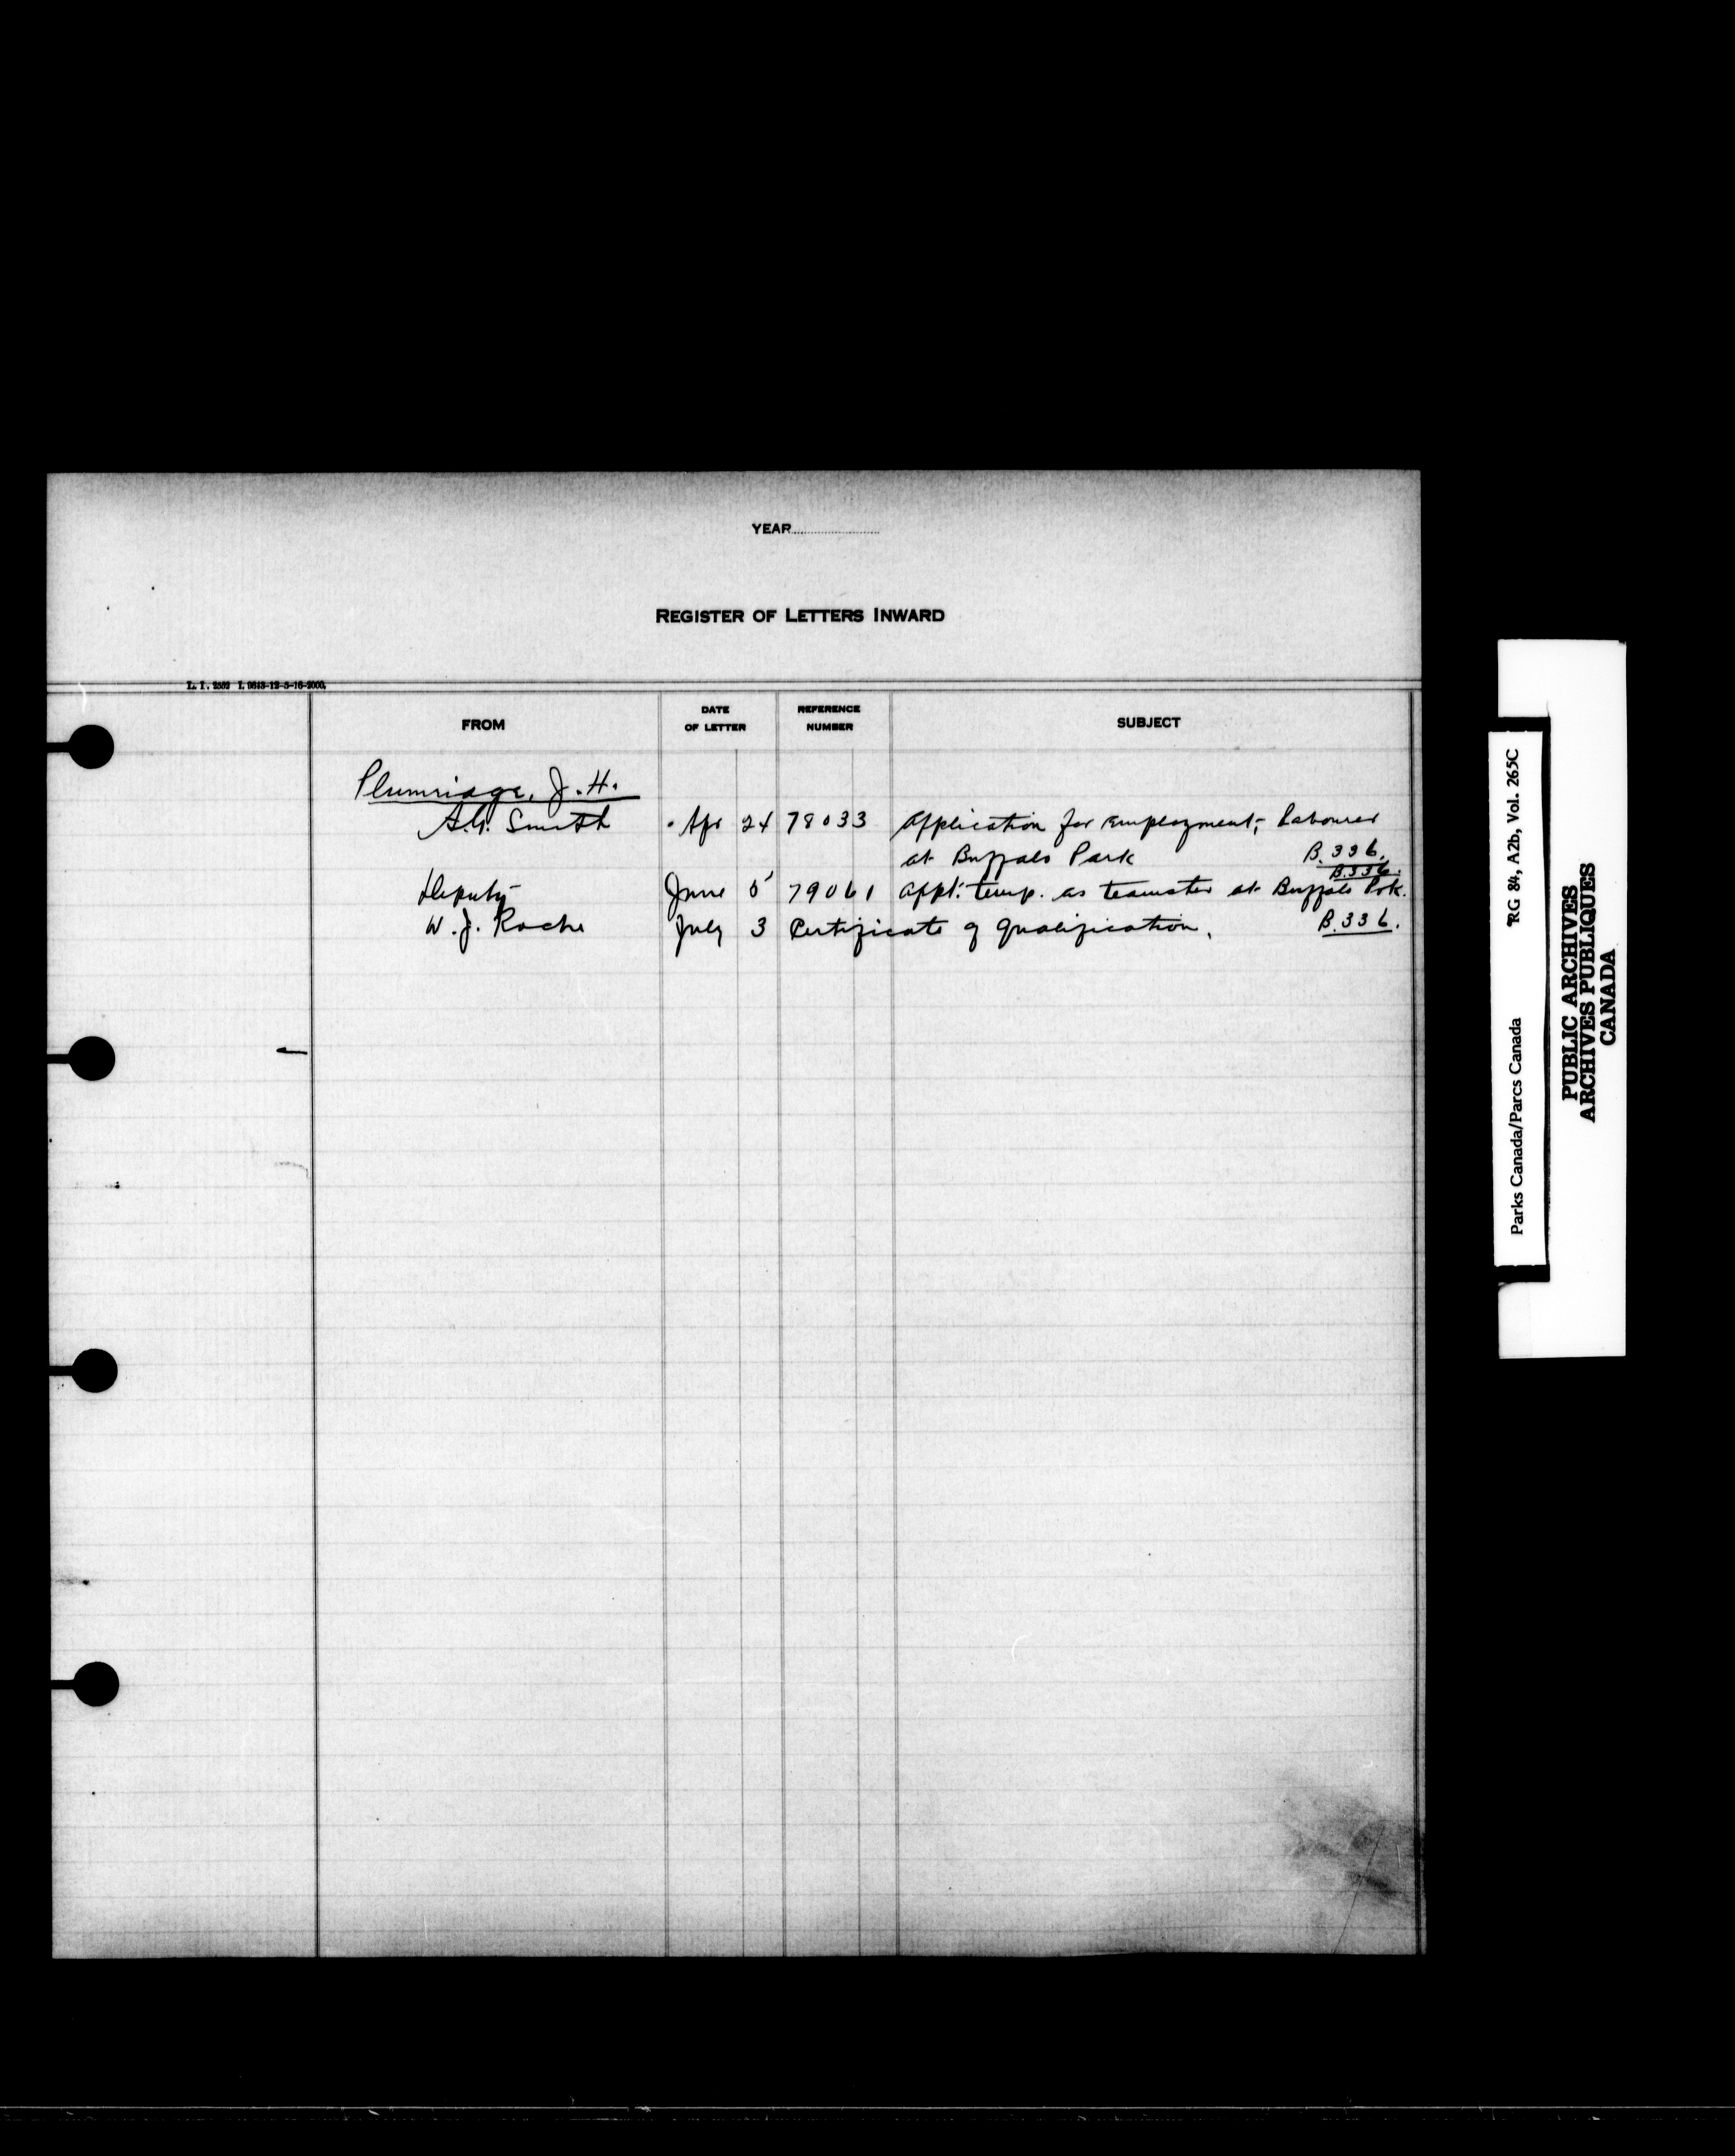 YEAR
REGISTER OF LETTERS INWARD
L. I. 2552 I. 9643-12-5-16-2000.
FROM DATE OF LETTER REFERENCE NUMBER SUBJECT
Plumridge, J. H.
A.G. Smith Apr 24 78033 Application for employment; Labourer
at Buffalo Park B.336.
B.336.
Deputy June 5 79061 Appt. temp. as teamster at Buffalo Prk.
W. J. Roche July 3 Certificate of Qualification. B.336.
Parks Canada/Parcs Canada RG 84, A2b, Vol. 265C
PUBLIC ARCHIVES
ARCHIVES PUBLIQUES
CANADA